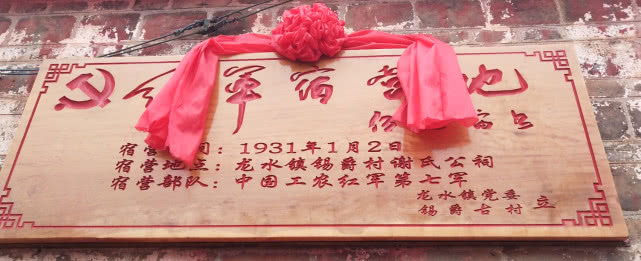 军宿营地
宿营时间：1931年1月2日
宿营地点：龙水镇锡爵村谢氏公祠
宿营部队：中国工农红军第七军
龙水镇党委
锡爵古村 立